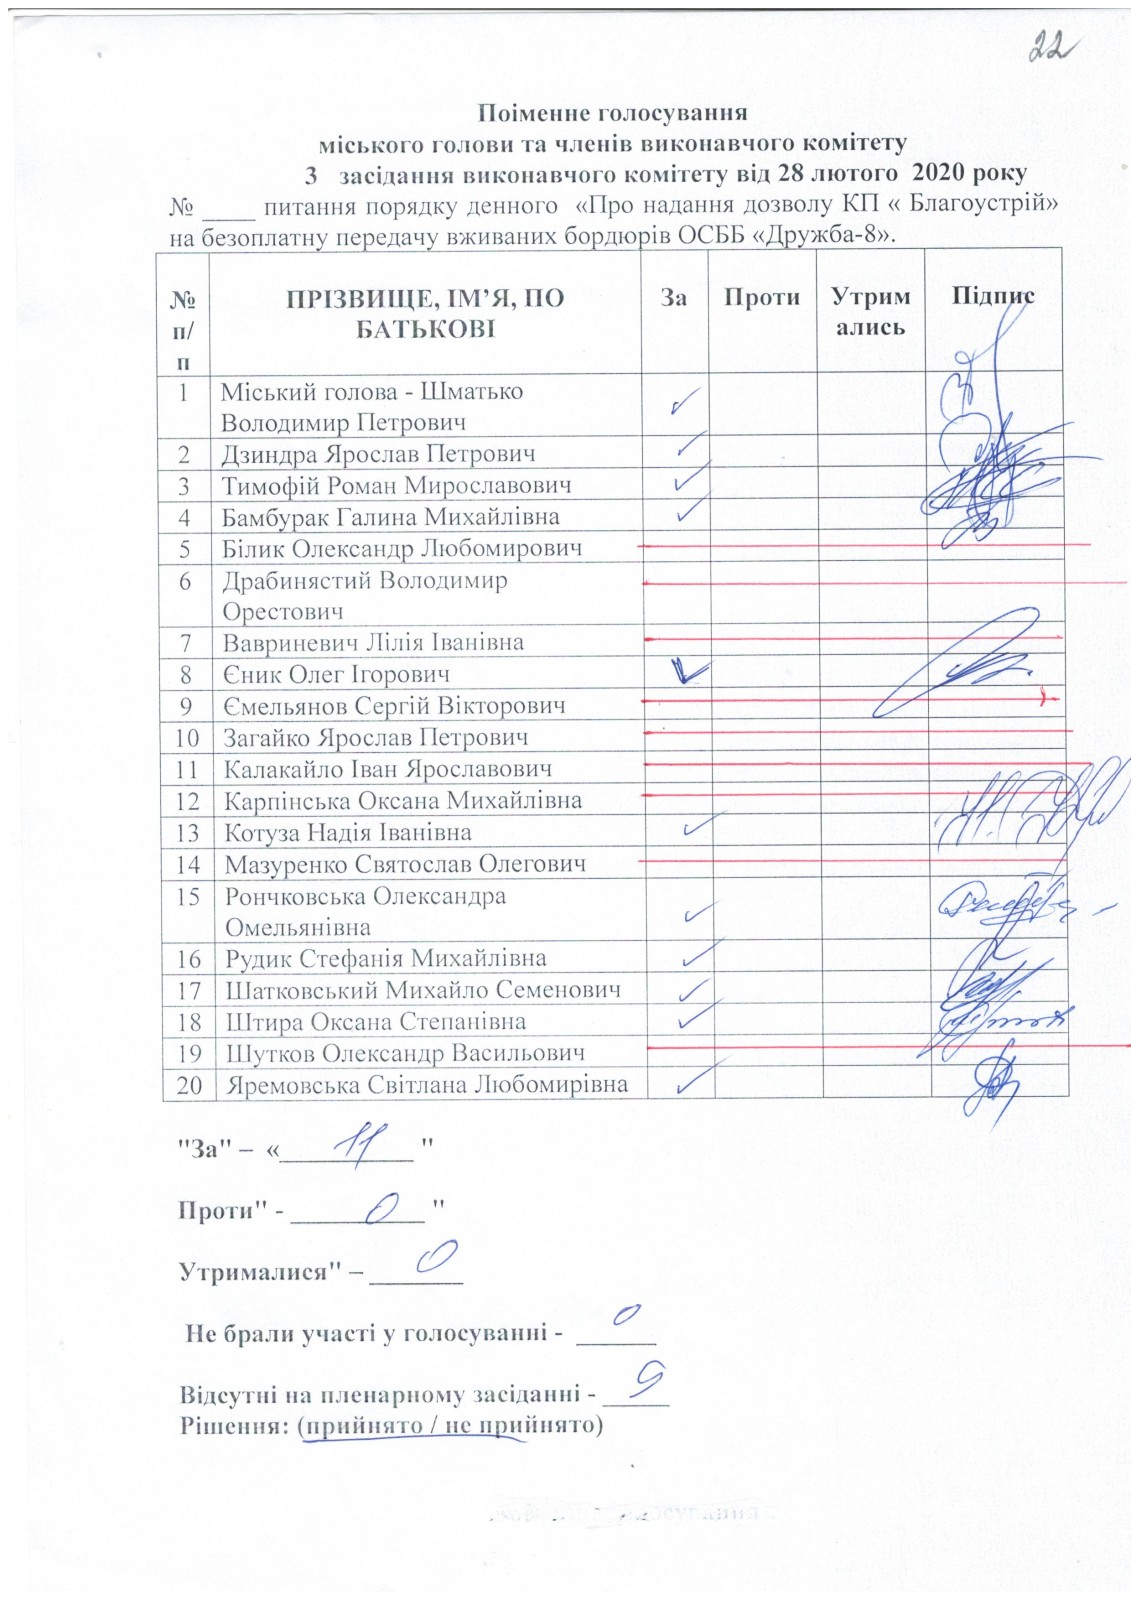 22
Поіменне голосування
міського голови та членів виконавчого комітету
3 засідання виконавчого комітету від 28 лютого 2020 року
№ ____ питання порядку денного «Про надання дозволу КП « Благоустрій»
на безоплатну передачу вживаних бордюрів ОСББ «Дружба-8».
№ п/п ПРІЗВИЩЕ, ІМ’Я, ПО БАТЬКОВІ За Проти Утримались Підпис
1 Міський голова - Шматько
Володимир Петрович ✓
2 Дзиндра Ярослав Петрович ✓
3 Тимофій Роман Мирославович ✓
4 Бамбурак Галина Михайлівна ✓
5 Білик Олександр Любомирович
6 Драбинястий Володимир
Орестович
7 Вавриневич Лілія Іванівна
8 Єник Олег Ігорович ✓
9 Ємельянов Сергій Вікторович
10 Загайко Ярослав Петрович
11 Калакайло Іван Ярославович
12 Карпінська Оксана Михайлівна
13 Котуза Надія Іванівна ✓
14 Мазуренко Святослав Олегович
15 Рончковська Олександра
Омельянівна ✓
16 Рудик Стефанія Михайлівна ✓
17 Шатковський Михайло Семенович ✓
18 Штира Оксана Степанівна ✓
19 Шутков Олександр Васильович
20 Яремовська Світлана Любомирівна ✓
"За" – « 11 "
Проти" - 0 "
Утрималися" – 0
Не брали участі у голосуванні - 0
Відсутні на пленарному засіданні - 9
Рішення: (прийнято / не прийнято)